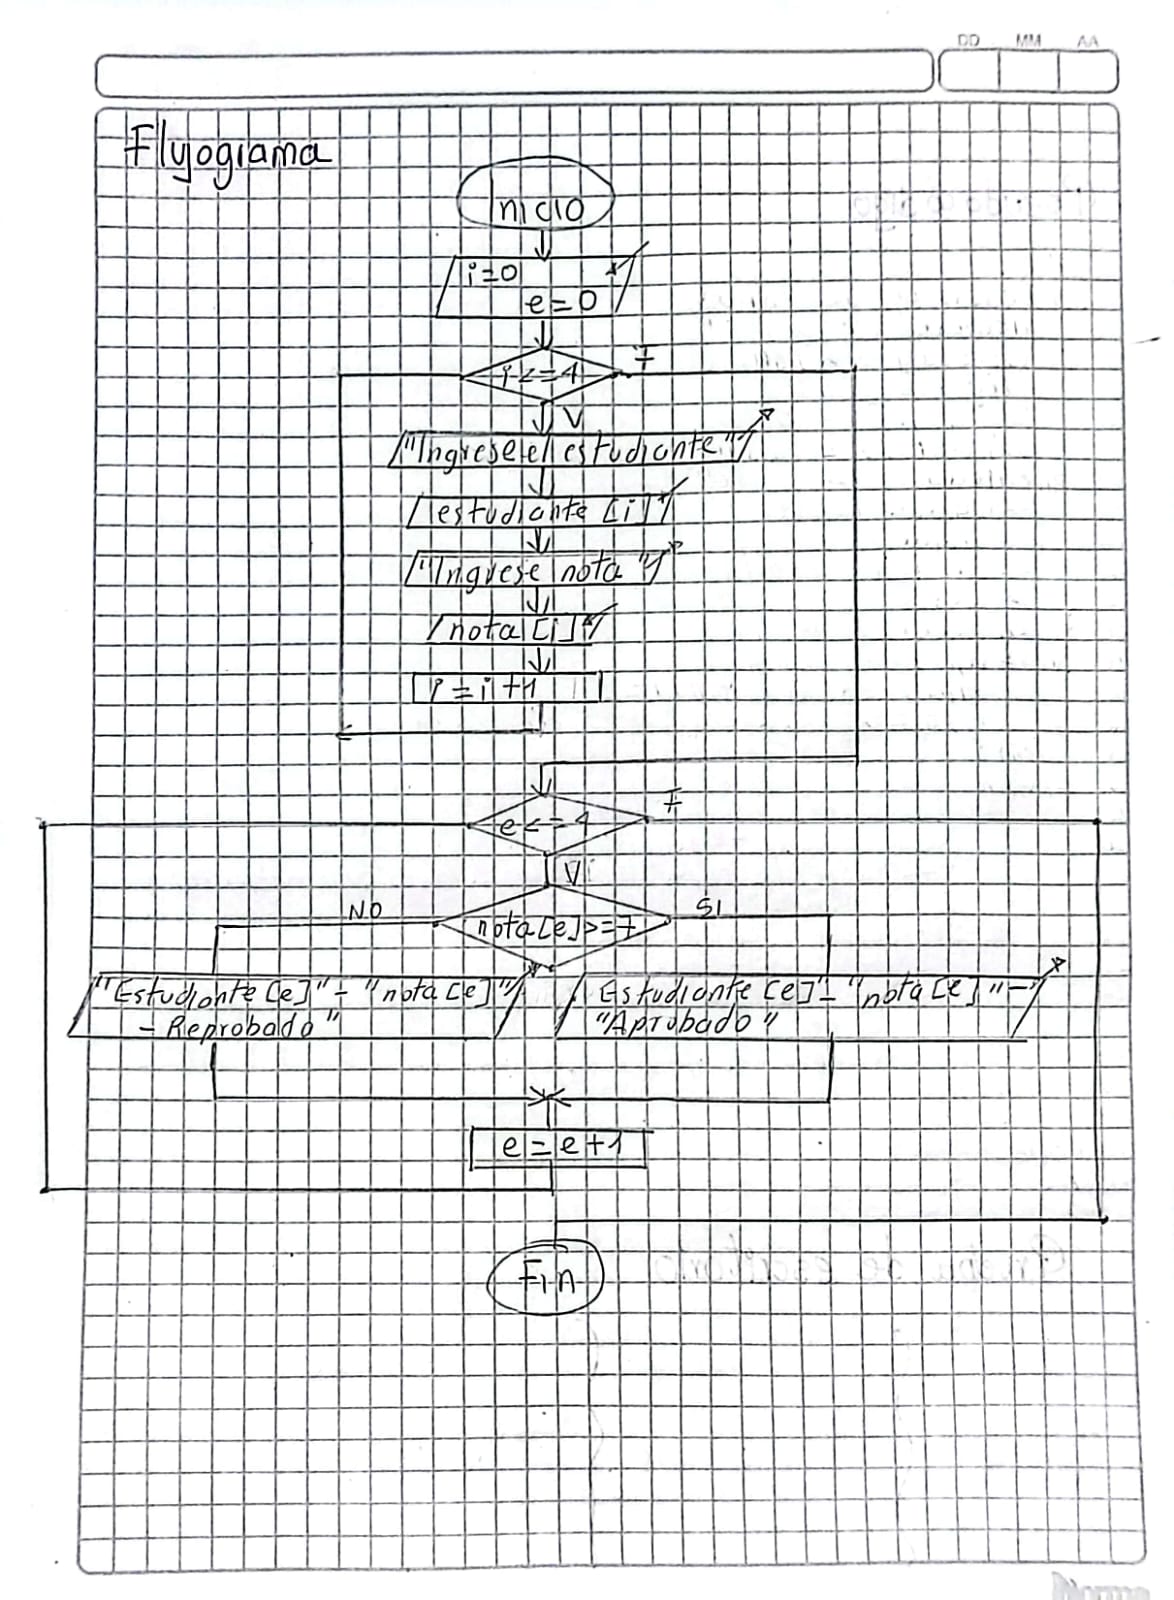 DD MM AA
Flujograma
Inicio
i=0
e=0
i<=4
F
V
"Ingrese el estudiante"
estudiante [i]
"Ingrese nota"
nota[i]
i=i+1
e<=4
F
V
NO
nota[e]>=7
SI
"Estudiante[e]"-"nota[e]"
- Reprobado"
Estudiante [e]-"nota[e]"-
"Aprobado"
e=e+1
Fin
Norma